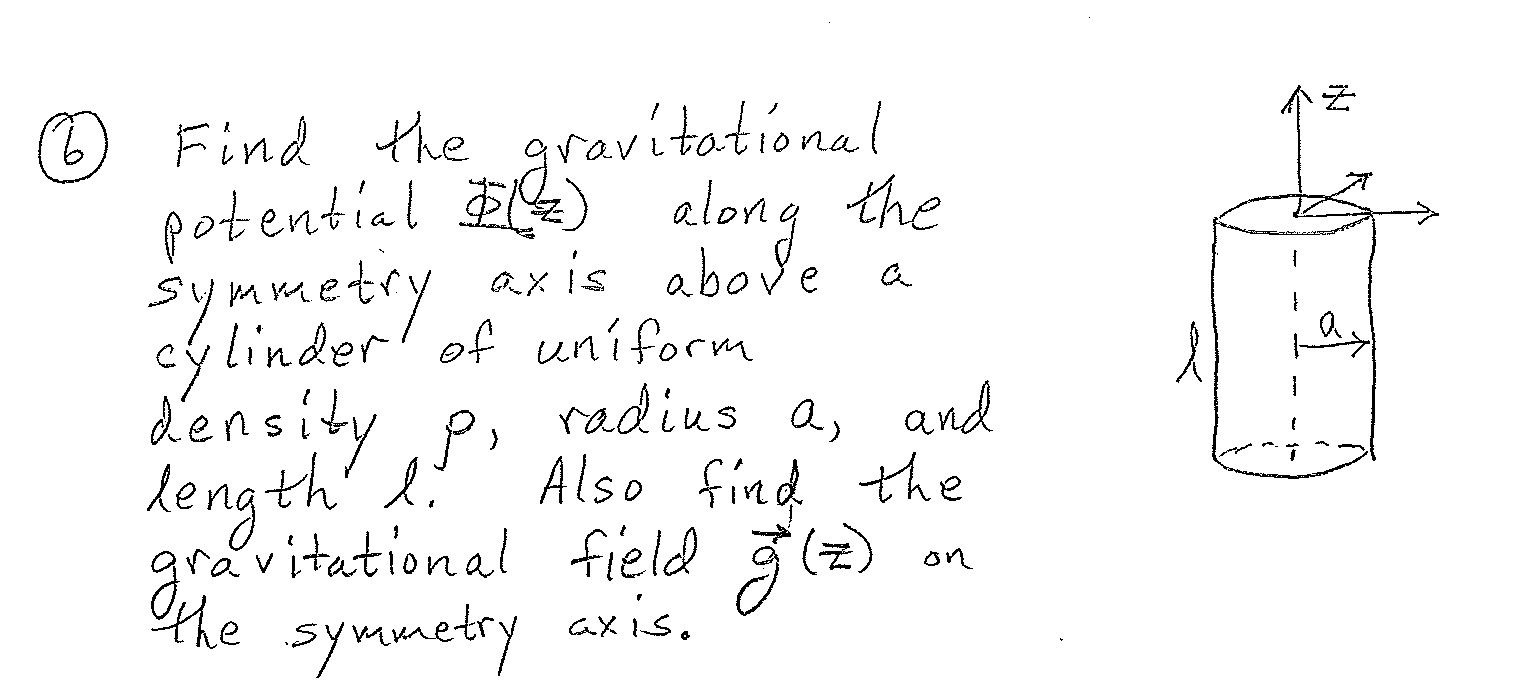 6 Find the gravitational
potential Φ(z) along the
symmetry axis above a
cylinder of uniform
density ρ, radius a, and
length l. Also find the
gravitational field g⃗(z) on
the symmetry axis.
z
a
l